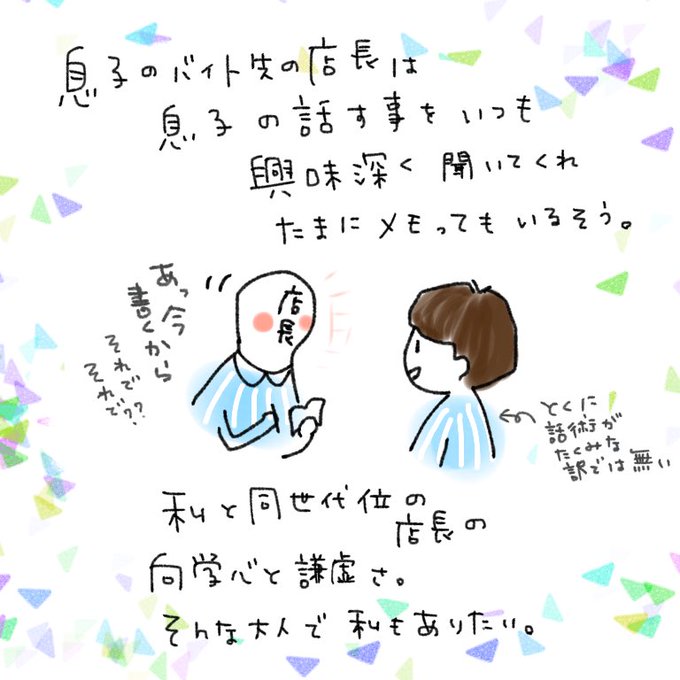 息子のバイト先の店長は
息子の話す事をいつも
興味深く聞いてくれ
たまにメモってもいるそう。
あっ今
書くから
それで
それで??
店長
とくに
話術が
たくみな
訳では無い
私と同世代位の
店長の
向学心と謙虚さ。
そんな大人で私もありたい。